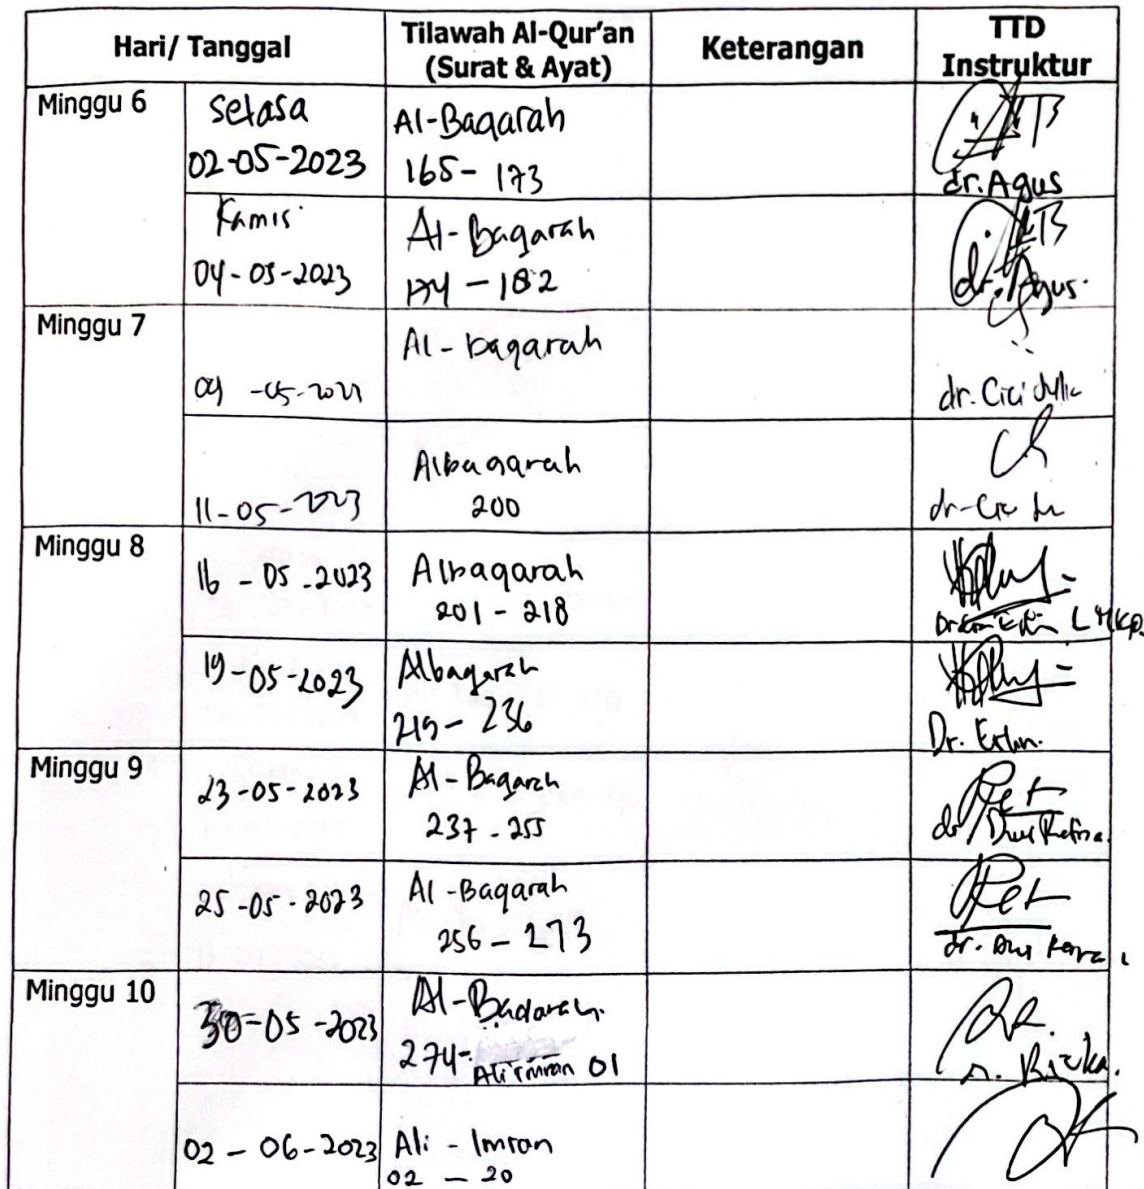 Hari/ Tanggal
Tilawah Al-Qur'an
(Surat & Ayat)
Keterangan
TTD
Instruktur
Minggu 6
Selasa
02-05-2023
Al-Baqarah
165 - 173
dr. Agus
Kamis
04-05-2023
Al-Baqarah
174 - 182
dr. Agus
Minggu 7
09 -05-2023
Al-baqarah
dr. Cici
11-05-2023
Albaqarah
200
Minggu 8
16 - 05 - 2023
Albaqarah
201 - 218
19-05-2023
Albaqarah
219 - 236
Dr.
Minggu 9
23-05-2023
Al-Baqarah
237 - 255
dr Dwi
25-05-2023
Al-Baqarah
256 - 273
dr. Dwi
Minggu 10
30-05-2023
Al-Baqarah
274-
Ali imran 01
02 - 06-2023
Ali - Imran
02 - 20